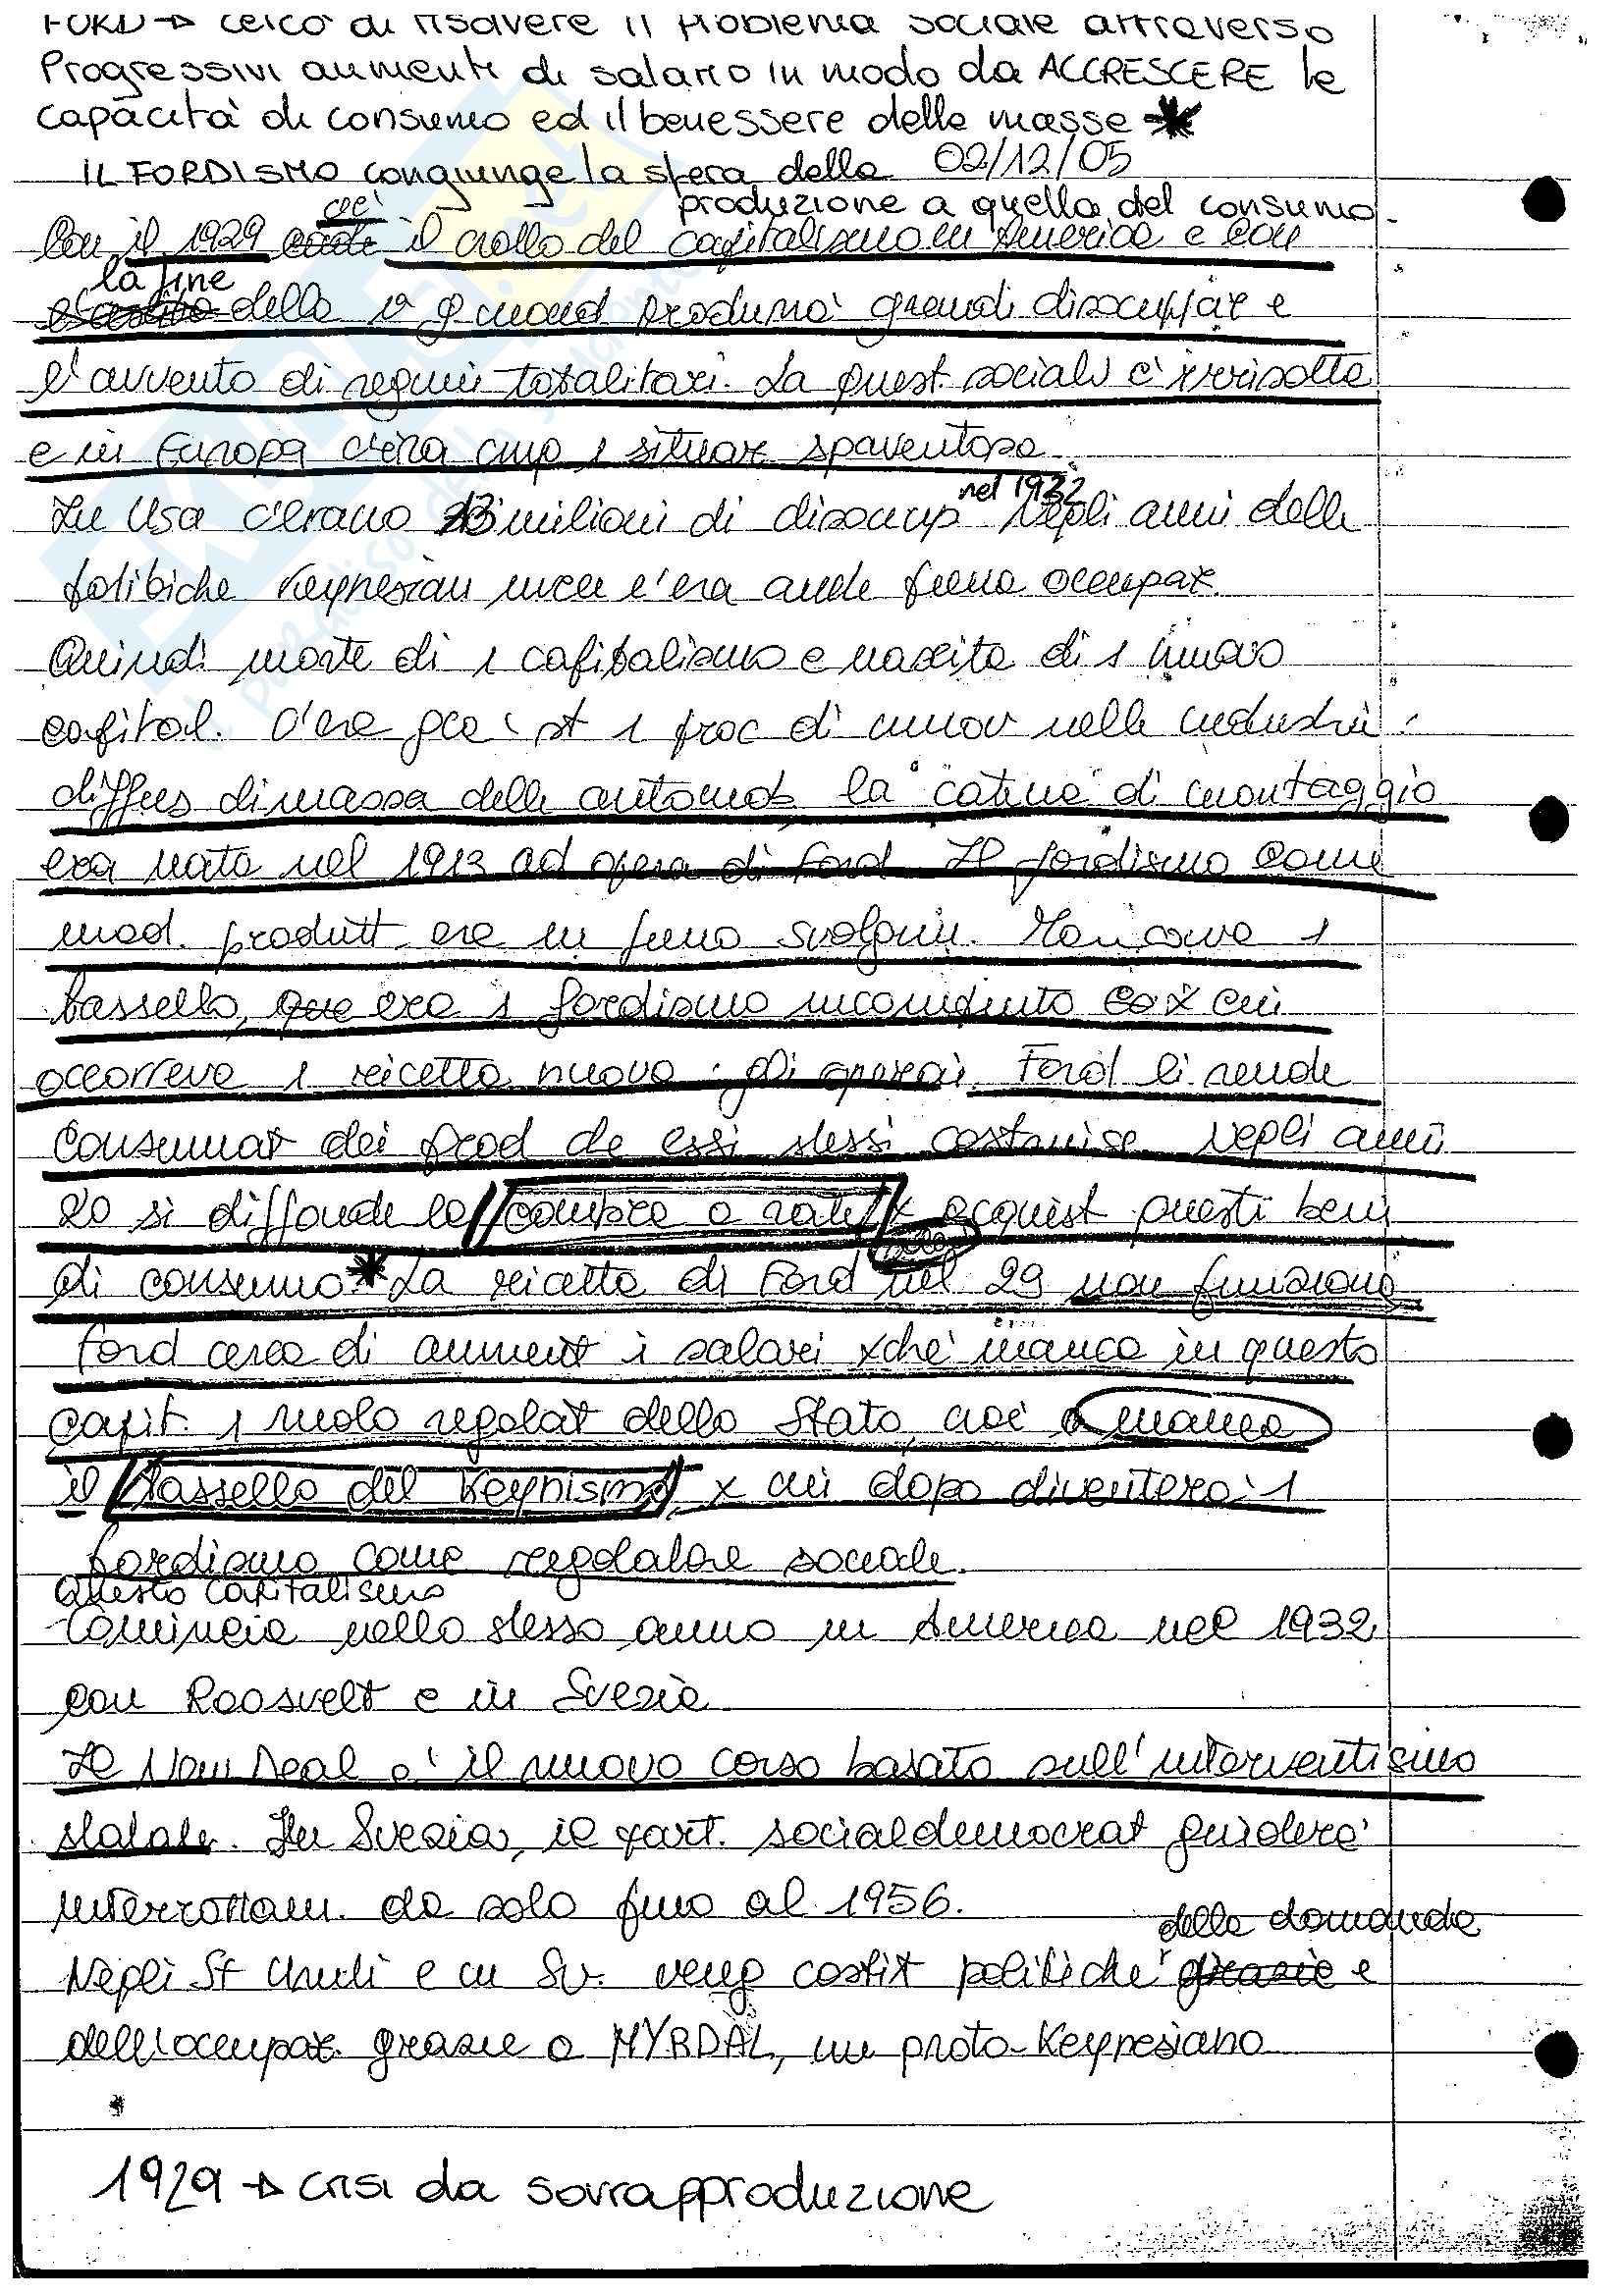 FORD → cercò di risolvere il problema sociale attraverso
Progressivi aumenti di salario in modo da ACCRESCERE le
capacità di consumo ed il benessere delle masse *
IL FORDISMO congiunge la sfera della 02/12/05
produzione a quella del consumo.
Con il 1929 c'è il crollo del capitalismo in America e con
la fine della 1ª g. mond produrrà grandi disoccupaz e
l'avvento di regimi totalitari. La quest. sociale è irrisolta
e in Europa c'era cmq 1 situaz spaventosa
In Usa c'erano 13 milioni di disoccup nel 1932 Negli anni delle
politiche Keynesian invece c'era anche piena occupaz.
Quindi morte di 1 capitalismo e nascita di 1 nuovo
capital. C'era già st 1 proc di innov nelle industrie:
diffus di massa delle automob, la "catena di montaggio
era nata nel 1913 ad opera di Ford. Il fordismo come
mod. produtt. era in pieno svolgim. Mancava 1
tassello, era 1 fordismo incompiuto x cui
occorreva 1 ricetta nuova: gli operai. Ford li rende
consumat dei prod che essi stessi costruisc. Negli anni
20 si diffonde la compra a rate x acquist questi beni
di consumo.* La ricetta di Ford nel 29 non funziona
Ford cerca di aument i salari xchè manca in questo
capit. 1 ruolo regolat dello Stato, cioè manca
il tassello del Keynismo, x cui dopo diventerà 1
fordismo come regolatore sociale.
Questo capitalismo
Comincia nello stesso anno in America nel 1932
con Roosvelt e in Svezia
Il New Deal e' il nuovo corso basato sull'interventismo
statale. In Svezia, il part. socialdemocrat guiderà
ininterrottam. da solo fino al 1956.
della domanda
Negli St Uniti e in Sv. veng costit politiche e
dell'occupaz. grazie a MYRDAL, un proto-Keynesiano
1929 → crisi da sovrapproduzione